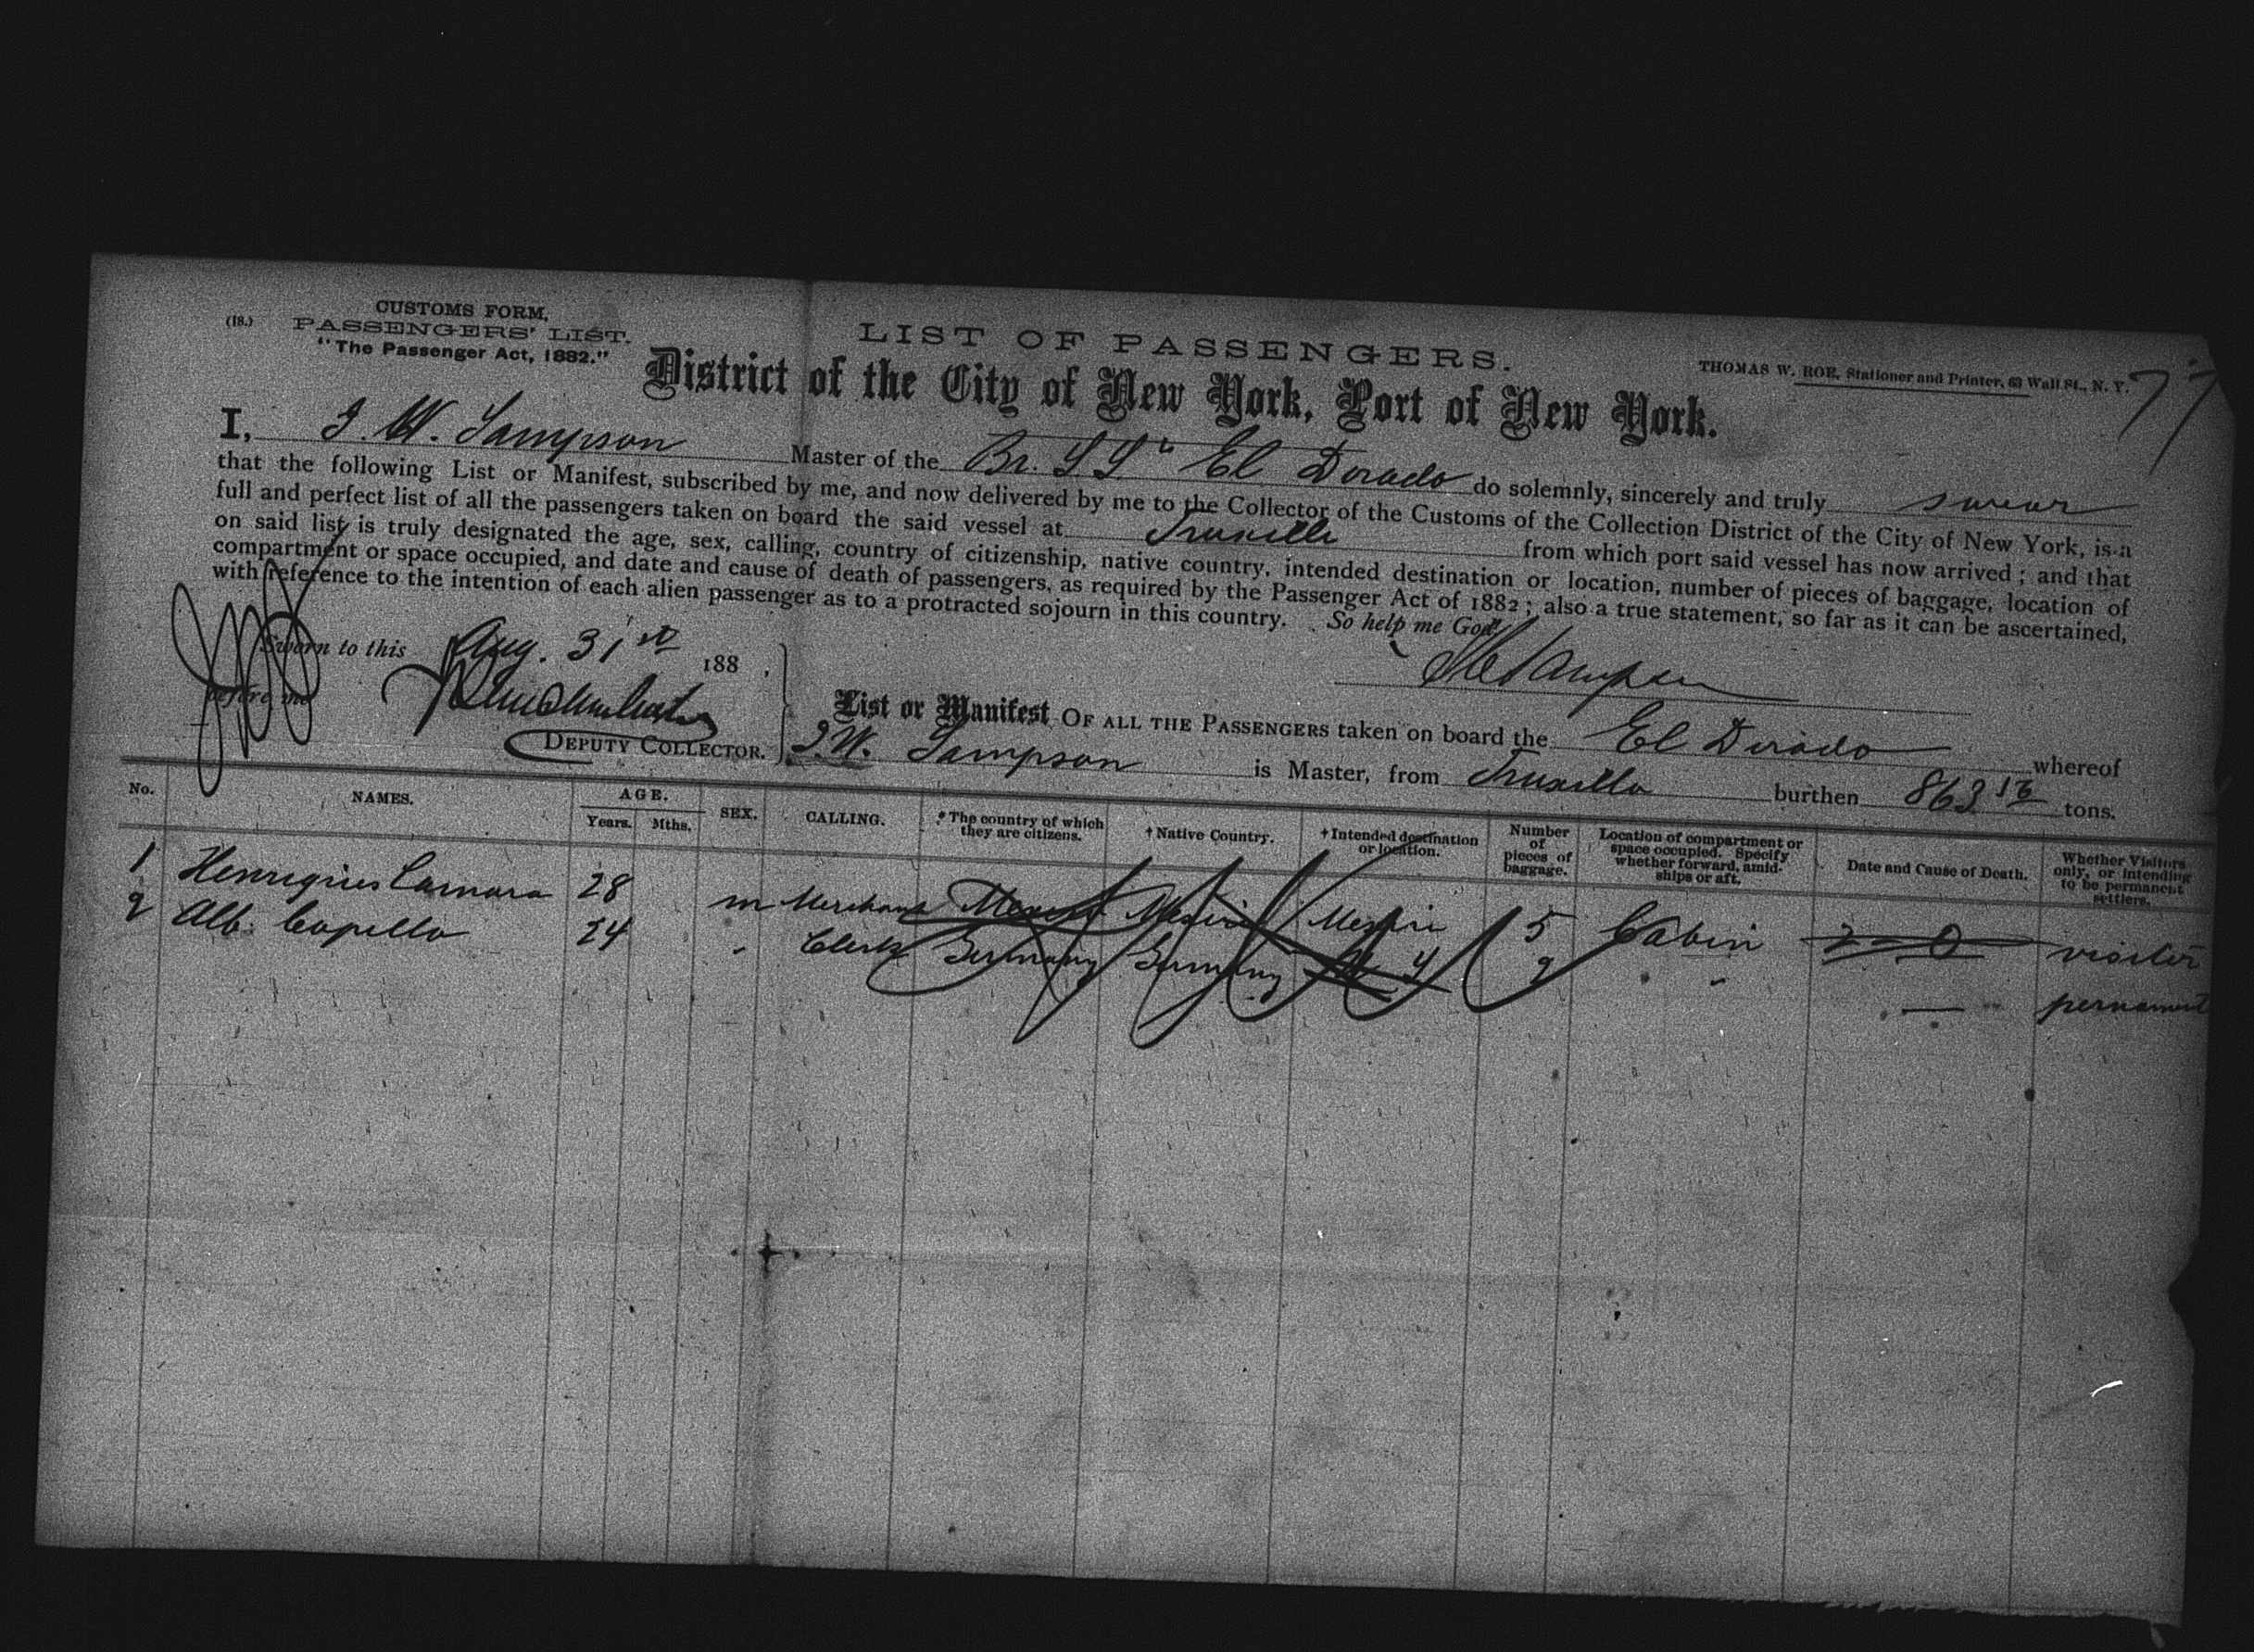 (18.)
CUSTOMS FORM,
PASSENGERS' LIST.
"The Passenger Act, 1882."
LIST OF PASSENGERS.
THOMAS W. ROE, Stationer and Printer, 63 Wall St., N. Y.
77
District of the City of New York, Port of New York.
I, J. W. Sampson Master of the Br. SS " El Dorado do solemnly, sincerely and truly swear
that the following List or Manifest, subscribed by me, and now delivered by me to the Collector of the Customs of the Collection District of the City of New York, is a
full and perfect list of all the passengers taken on board the said vessel at Truxillo from which port said vessel has now arrived; and that
on said list is truly designated the age, sex, calling, country of citizenship, native country, intended destination or location, number of pieces of baggage, location of
compartment or space occupied, and date and cause of death of passengers, as required by the Passenger Act of 1882; also a true statement, so far as it can be ascertained,
with reference to the intention of each alien passenger as to a protracted sojourn in this country. So help me God.
Sworn to this Aug. 31st 188 .
before me
DEPUTY COLLECTOR.
List or Manifest OF ALL THE PASSENGERS taken on board the El Dorado whereof
J. W. Sampson is Master, from Truxillo burthen 863 tons.
No. NAMES. AGE. Years. Mths. SEX. CALLING. * The country of which they are citizens. † Native Country. † Intended destination or location. Number of pieces of baggage. Location of compartment or space occupied. Specify whether forward, amidships or aft. Date and Cause of Death. Whether Visitors only, or intending to be permanent settlers.
1 Henriques Camara 28 m Merchant Mexico Mexico 5 Cabin visitor
2 Alb. Copello 24 " Clerk Germany Germany 2 " — permanent